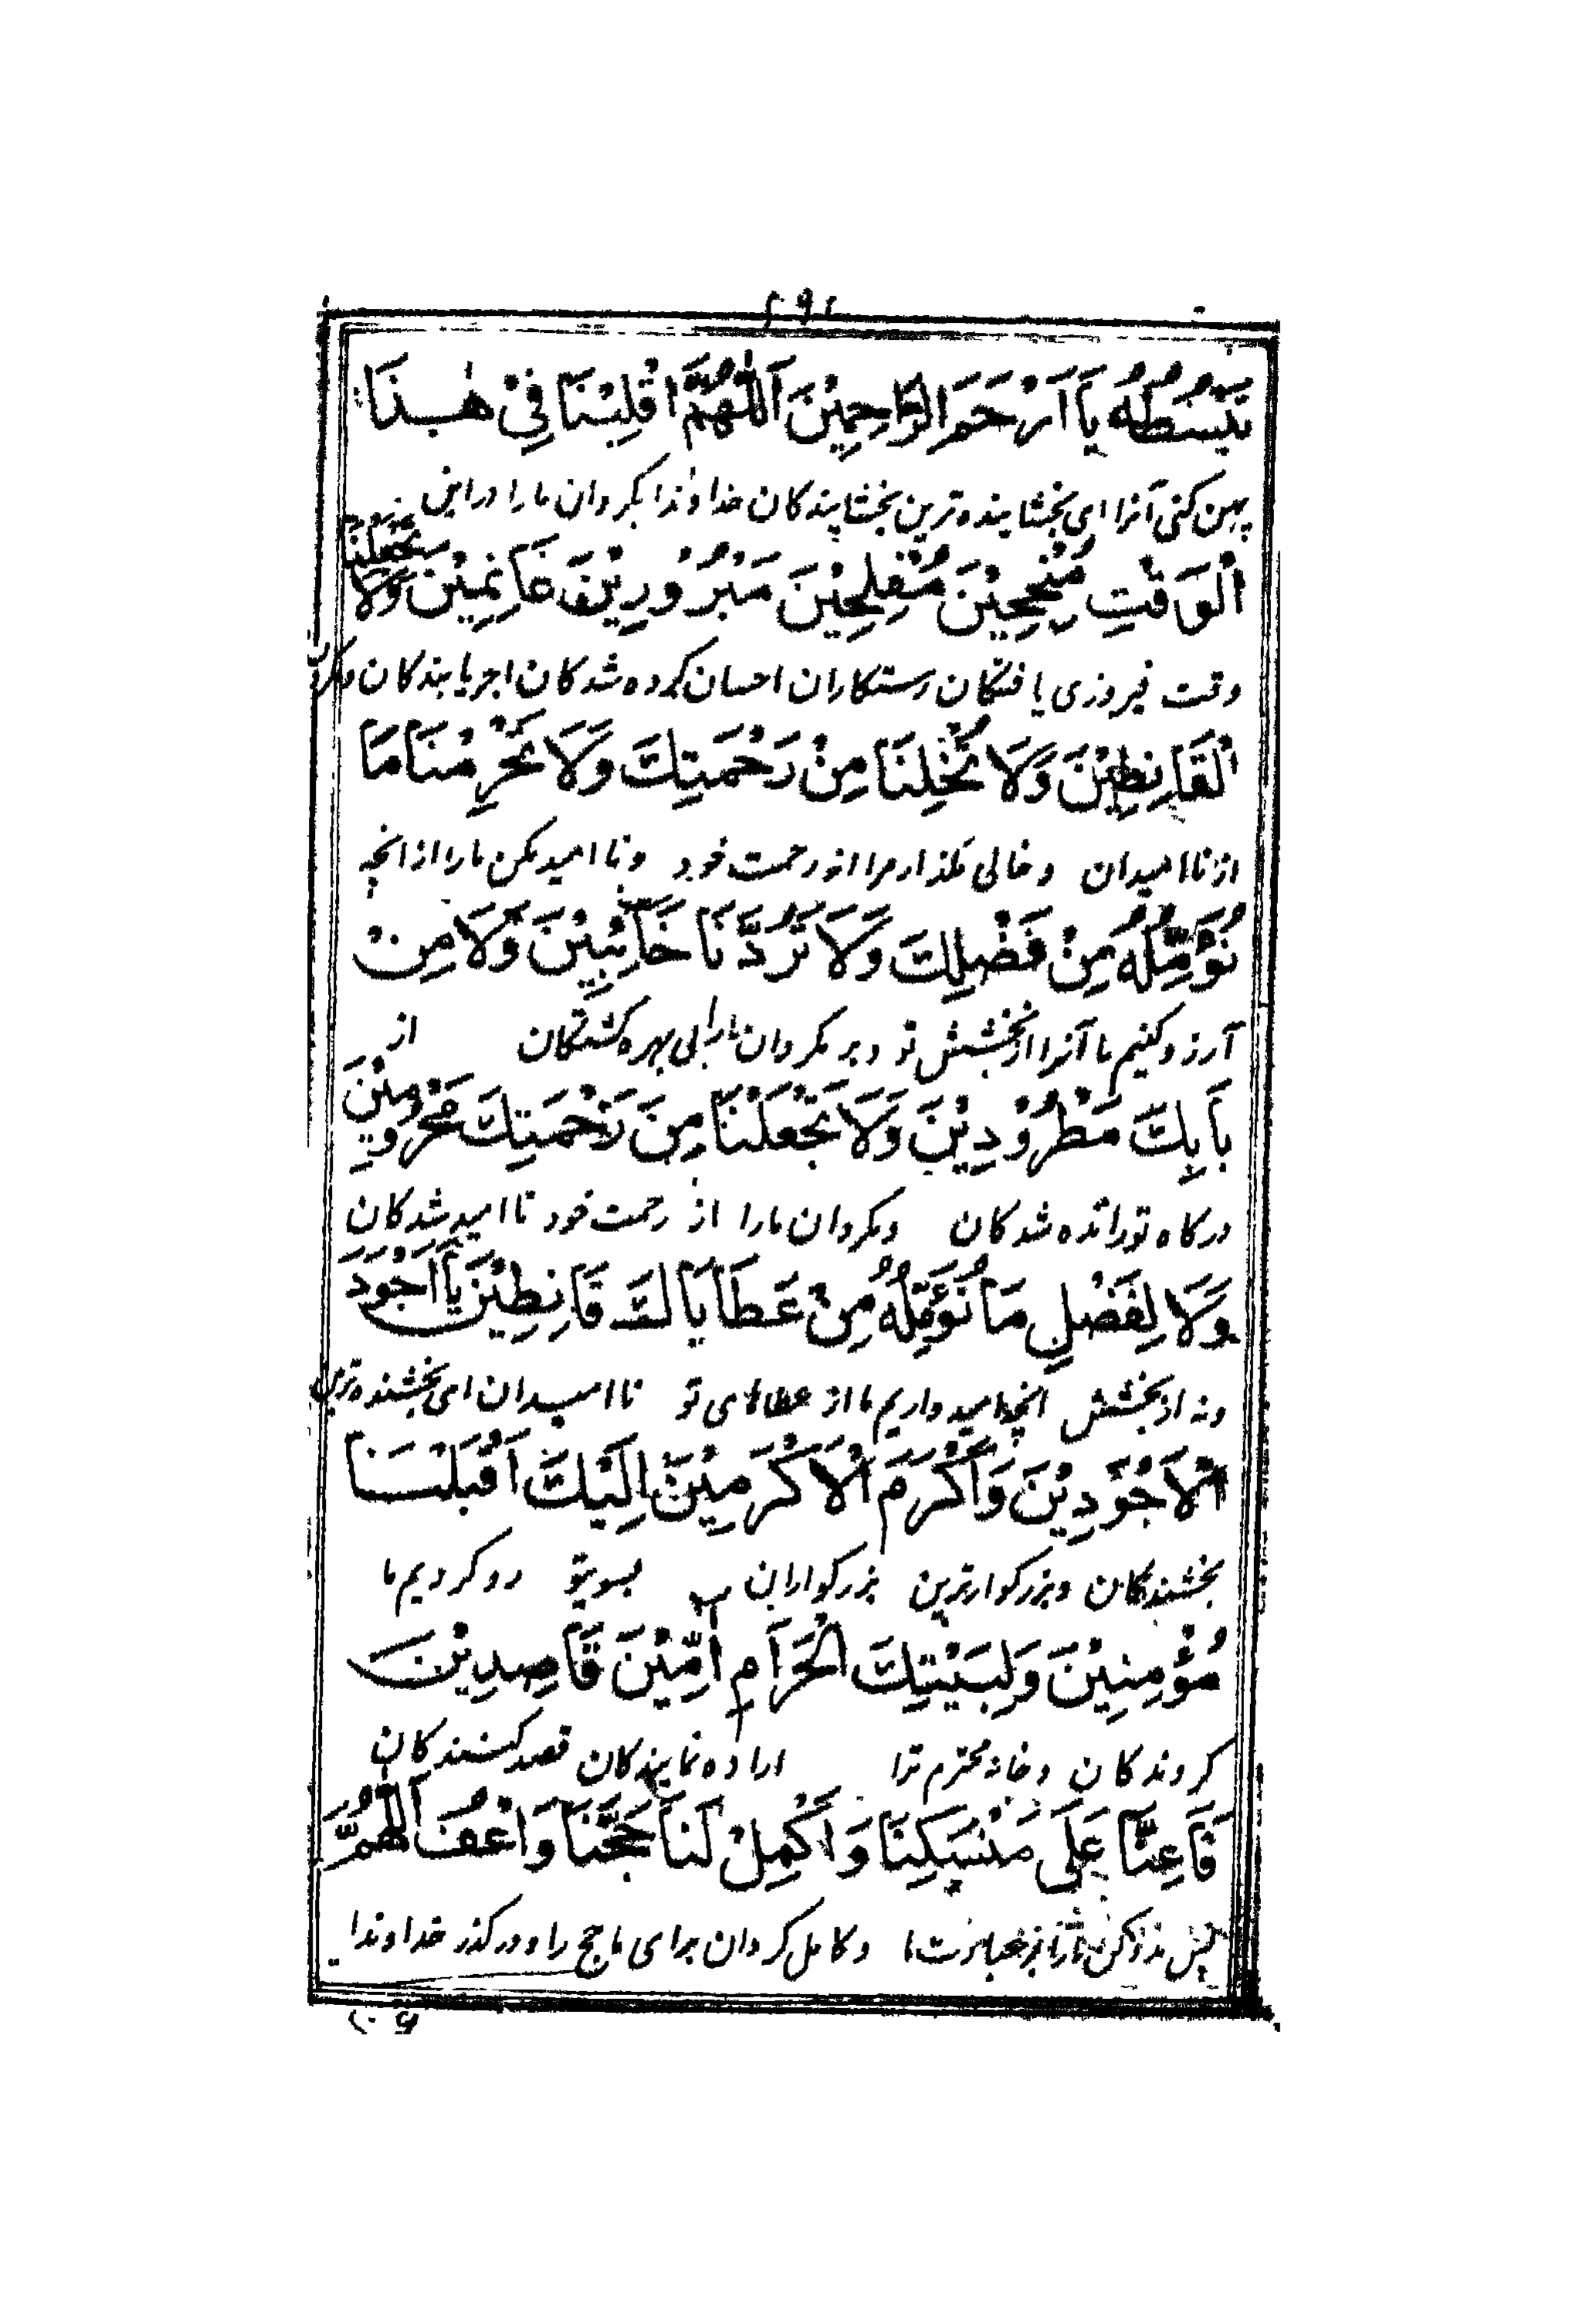 ۲۹۲
تَبْسُطُهُ يَا اَرْحَمَ الرَّاحِمِيْنَ اَللّٰهُمَّ اقْلِبْنَا فِيْ هٰذَا
پهن کنی آنرا ای بخشاینده ترین بخشایندکان خداوندا بکردان مارا دراین
الْوَقْتِ مُنْجِحِيْنَ مُفْلِحِيْنَ مَبْرُوْرِيْنَ غَانِمِيْنَ وَلَا تَجْعَلْنَا
وقت فیروزی یافتکان رستکاران احسان کرده شدکان اجریابندکان ومکردان
الْقَانِطِيْنَ وَلَا تُخْلِنَا مِنْ رَحْمَتِكَ وَلَا تَحْرِمْنَا مَا
ازناامیدان وخالی مکذار مرا از رحمت خود ونا امید مکن مارا از انچه
نُؤَمِّلُهُ مِنْ فَضْلِكَ وَلَا تَرُدَّنَا خَائِبِيْنَ وَلَا مِنْ
آرزو کنیم ما آنرا از بخشش تو وبر مکردان مارا بی بهره کشتکان از
بَابِكَ مَطْرُوْدِيْنَ وَلَا تَجْعَلْنَا مِنَ رَحْمَتِكَ مَحْرُوْمِيْنَ
درکاه تو رانده شدکان ومکردان مارا از رحمت خود نا امید شدکان
وَلَا لِفَضْلِ مَا نُؤَمِّلُهُ مِنْ عَطَايَاكَ قَانِطِيْنَ يَا اَجْوَدَ
ونه از بخشش انچه امید واریم ما از عطاهای تو نا امیدان ای بخشنده ترین
الْاَجْوَدِيْنَ وَاَكْرَمَ الْاَكْرَمِيْنَ اِلَيْكَ اَقْبَلْنَا
بخشندکان وبزرکوارترین بزرکواران بسویتو رو کردیم ما
مُؤْمِنِيْنَ وَلِبَيْتِكَ الْحَرَامِ اٰمِّيْنَ قَاصِدِيْنَ
کروندکان وخانه محترم ترا اراده نمایندکان قصد کنندکان
فَاَعِنَّا عَلَى مَنْسَكِنَا وَاَكْمِلْ لَنَا حَجَّنَا وَاعْفُ اَللّٰهُمَّ
پس وکامل کردان برای ما حج را ودرکذر خداوندا